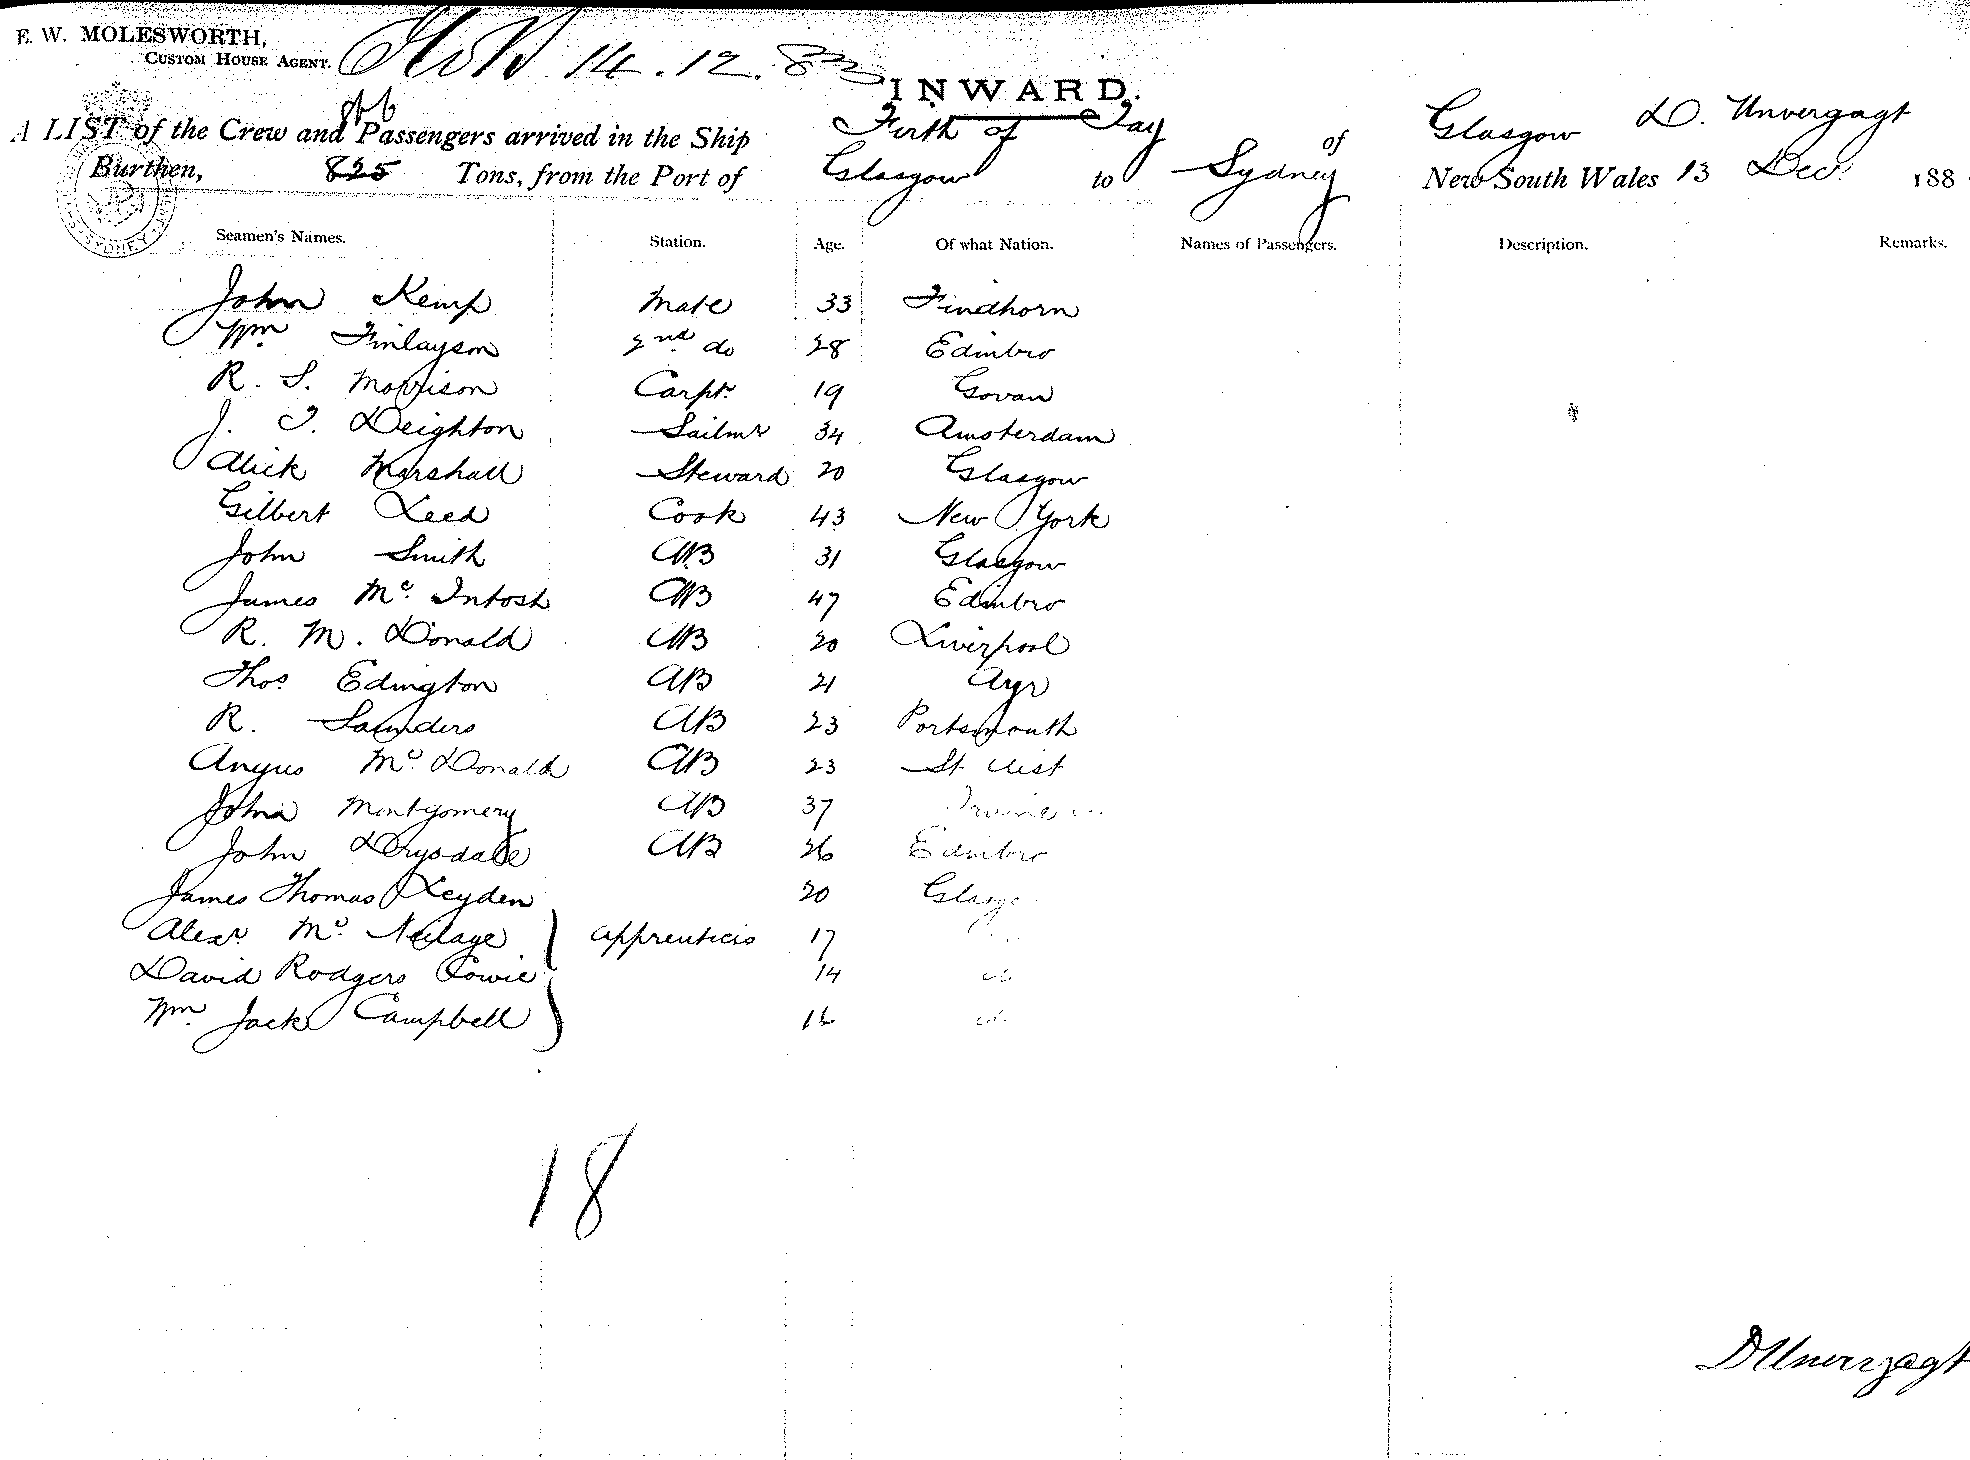 E. W. MOLESWORTH,
CUSTOM HOUSE AGENT. 14.12.83
INWARD.
A LIST of the Crew and Passengers arrived in the Ship Firth of Tay of Glasgow D. Unvergagt
Burthen, 825 Tons, from the Port of Glasgow to Sydney New South Wales 13 Dec. 188
Seamen's Names. Station. Age. Of what Nation. Names of Passengers. Description. Remarks.
John Kemp Mate 33 Findhorn
Wm Finlayson 2nd do 28 Edinbro
R. S. Morrison Carptr. 19 Govan
J. T. Deighton Sailmr 34 Amsterdam
Alick Marshall Steward 20 Glasgow
Gilbert Leed Cook 43 New York
John Smith AB 31 Glasgow
James Mc. Intosh AB 47 Edinbro
R. M. Donald AB 20 Liverpool
Thos Edington AB 21 Ayr
R. Saunders AB 23 Portsmouth
Angus Mc. Donald AB 23 St Uist
John Montgomery AB 37 Irvine
John Drysdale AB 26 Edinbro
James Thomas Leyden 20 Glasgo
Alexr. Mc. Neilage apprentices 17
David Rodgers Cowie 14 do
Wm. Jack Campbell 16 do
18
D Unverzagt